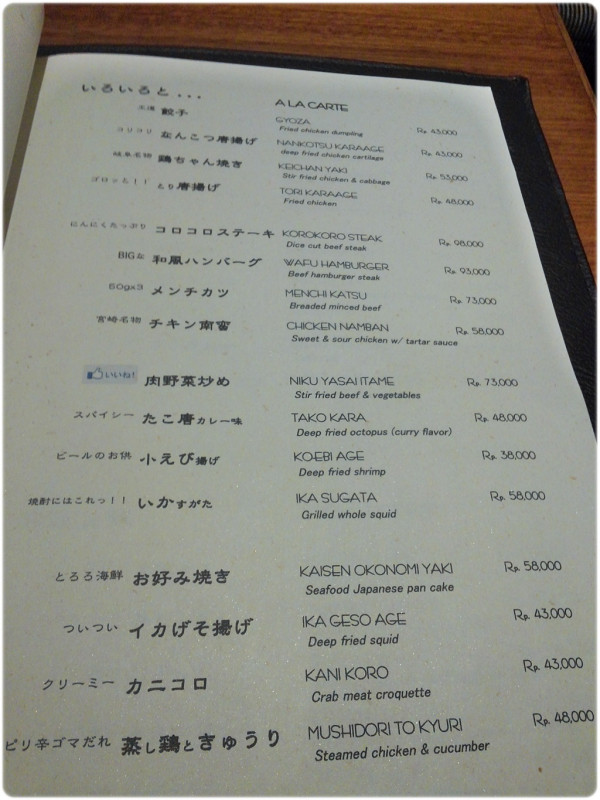 いろいろと... A LA CARTE
王道 餃子 GYOZA Rp. 43,000
Fried chicken dumpling
コリコリ なんこつ唐揚げ NANKOTSU KARAAGE Rp. 43,000
deep fried chicken cartilage
岐阜名物 鶏ちゃん焼き KEICHAN YAKI Rp. 53,000
Stir fried chicken & cabbage
ゴロッと!! とり唐揚げ TORI KARAAGE Rp. 48,000
Fried chicken
にんにくたっぷり コロコロステーキ KOROKORO STEAK Rp. 98,000
Dice cut beef steak
BIGな 和風ハンバーグ WAFU HAMBURGER Rp. 93,000
Beef hamburger steak
60gx3 メンチカツ MENCHI KATSU Rp. 73,000
Breaded minced beef
宮崎名物 チキン南蛮 CHICKEN NAMBAN Rp. 58,000
Sweet & sour chicken w/ tartar sauce
いいね! 肉野菜炒め NIKU YASAI ITAME Rp. 73,000
Stir fried beef & vegetables
スパイシー たこ唐カレー味 TAKO KARA Rp. 48,000
Deep fried octopus (curry flavor)
ビールのお供 小えび揚げ KO-EBI AGE Rp. 38,000
Deep fried shrimp
焼酎にはこれっ!! いかすがた IKA SUGATA Rp. 58,000
Grilled whole squid
とろろ海鮮 お好み焼き KAISEN OKONOMI YAKI Rp. 58,000
Seafood Japanese pan cake
ついつい イカげそ揚げ IKA GESO AGE Rp. 43,000
Deep fried squid
クリーミー カニコロ KANI KORO Rp. 43,000
Crab meat croquette
ピリ辛ゴマだれ 蒸し鶏ときゅうり MUSHIDORI TO KYURI Rp. 48,000
Steamed chicken & cucumber